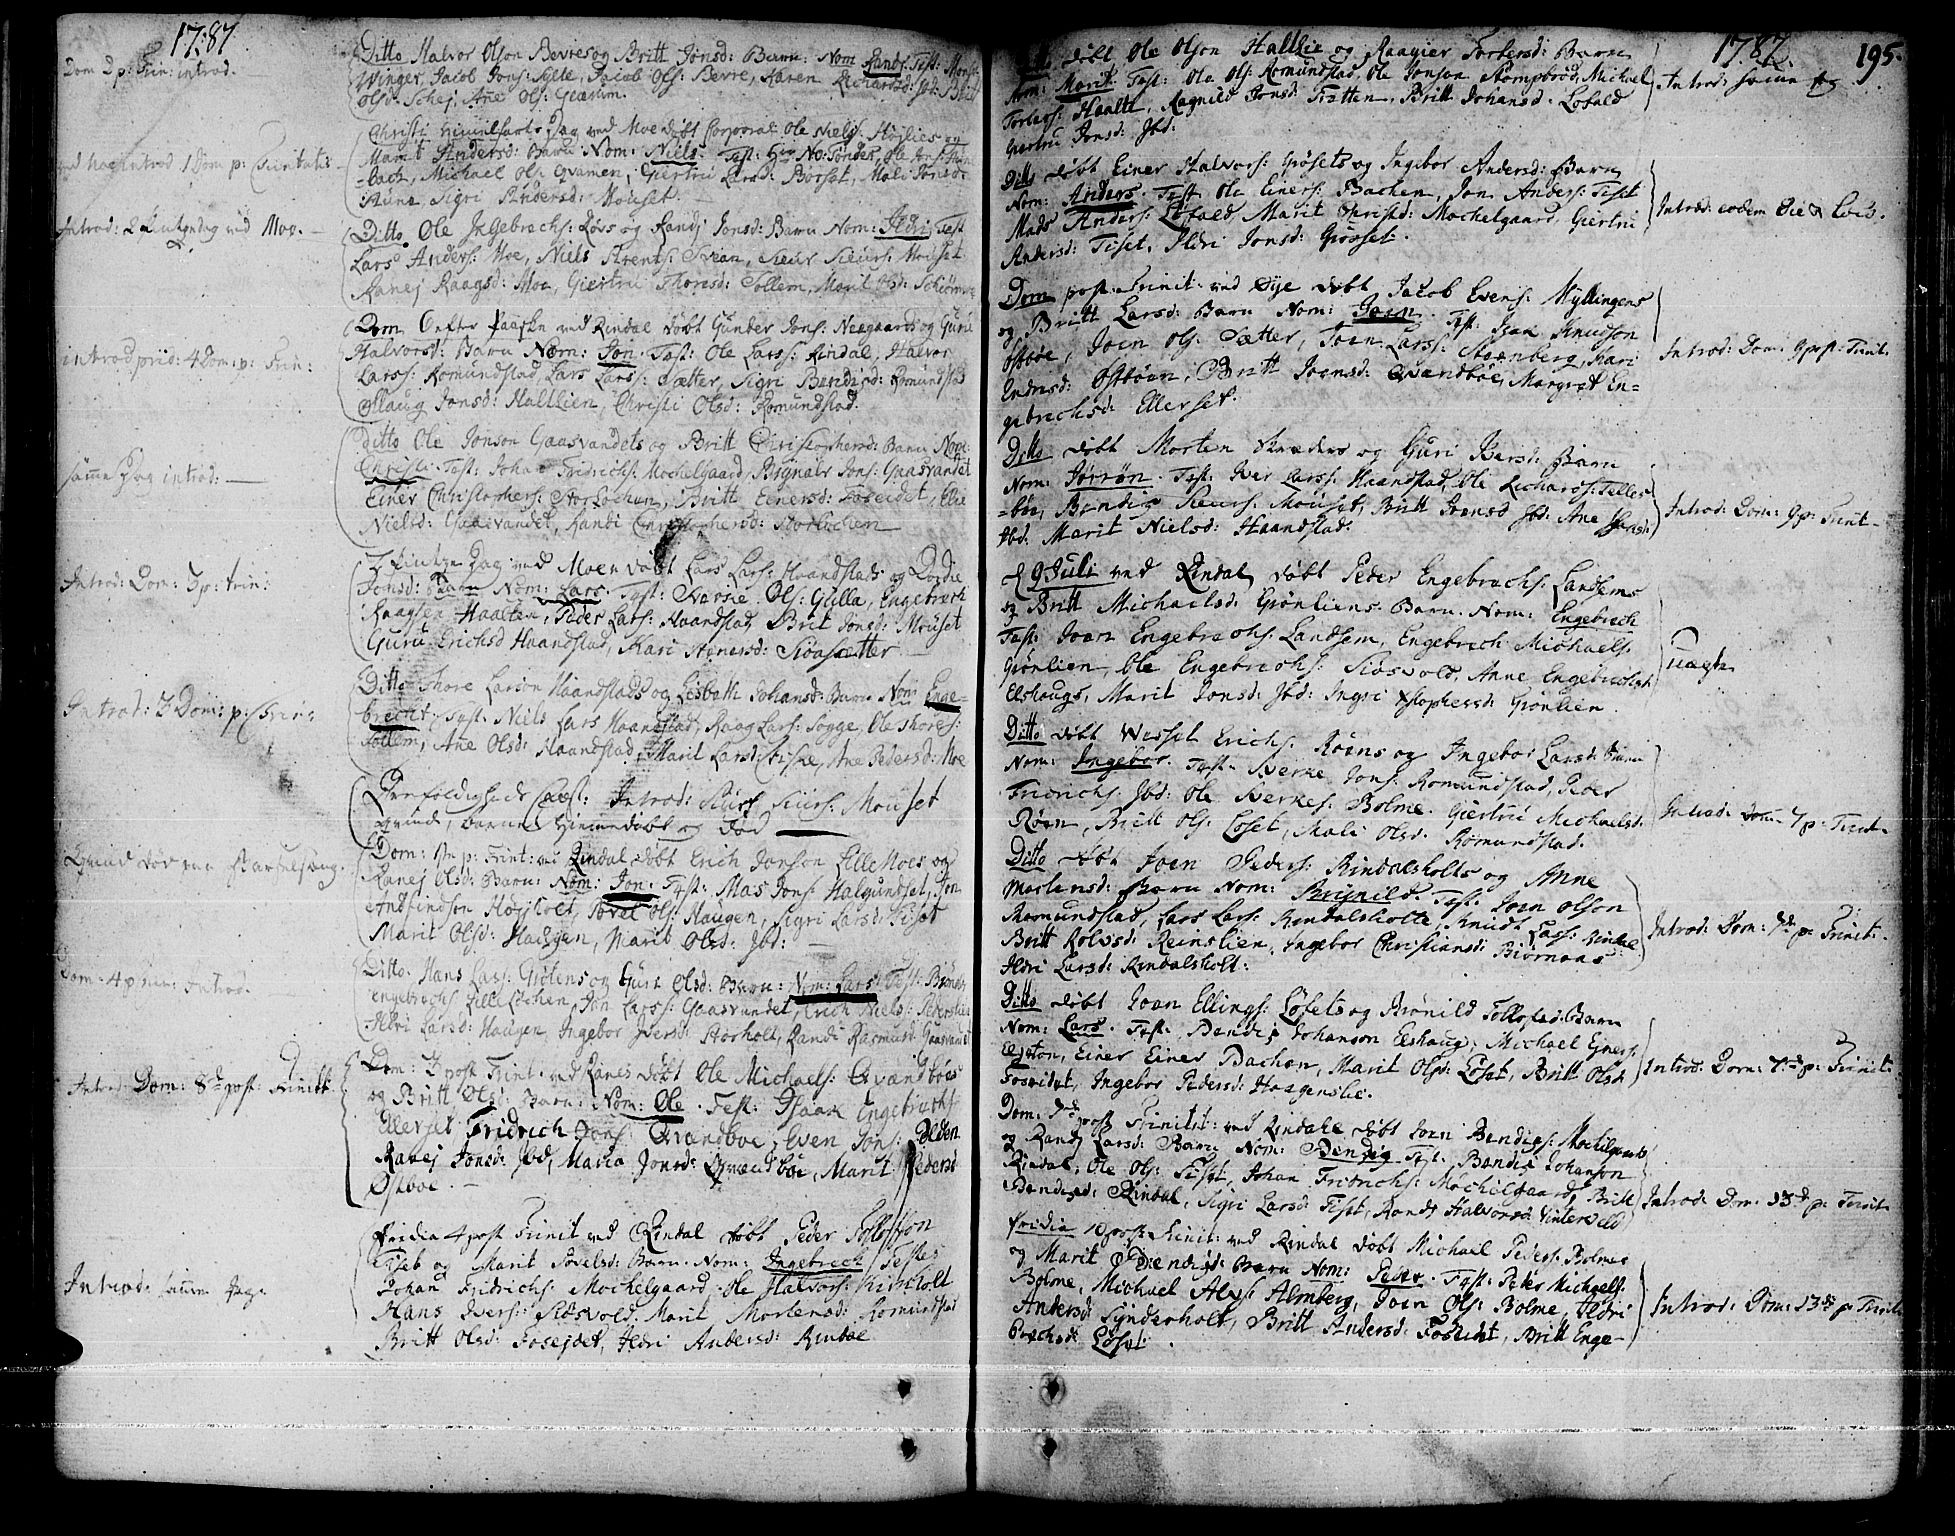 17:87
Dom 2 p: Trin: introd.
Ditto Halvor Olson Bevres og Britt Jonsd: Barn: Nom Randi Test: Mons:
Winger, Jacob Jons: Sylte, Jacob Ols: Bevre, Karen Richardsd: Ibd: Brit
Olsd: Schej, Ane Ols: Gierum.
introd 1 Dom p: Trinitat:
Christi Himmelfarts Dag ved Moe Døbt Corporal Ole Niels: Høilies og
Marit Andersd: Barn Nom: Niels. Test: Hr No: Tønder, Ole Jons:
bach, Michael Ols: Qvamen, Giertru Larsd: Børset, Mali Jonsd:
Sigri Andersd: Mouset.
Introd: 2 Pintzedag ved Moe.
Ditto Ole Ingebrechs: Løvs og Randj Jonsd: Barn Nom: Ildri Test
Lars Anders: Moe, Niels Arents: Svean, Siur Siurs: Mouset
Ranej Raagsd: Moe, Giertru Thoresd: Tollem, Marit Olsd:
introd prid: 4 Dom: p: Trin:
Dom efter Paaske ved Rindal Døbt Gunder Jons: Neegaards og Guru
Halvorsd: Barn Nom: Jon. Test: Ole Lars: Rindal, Halvor
Larss: Romundstad, Lars Larss: Sætter, Sigri Bendisd: Romundstad
Ollaug Jonsd: Haltlien, Christi Olsd: Romundstad.
samme Dag introd:
Ditto Ole Jonson Gaasvandets og Britt Christophersd: Barn Nom:
Christi Test: Johan Fridrichs: Mochelgaard, Jons: Gaasvandet
Einer Christophers: Storlochen, Britt Einersd: Foseidet, Ellie
Nielsd: Gaasvandet, Randi Christophersd: Storlochen
Introd: Dom: 3 p: trin:
2 Pintze Dag ved Moe Døbt Lars Lars: Haandstads og Dordie
Jonsd: Barn Nom: Lars. Test: Sversie Ols: Gulla, Engebrech
Raagsen Haalten, Peder Lars: Haandstad, Brit Jonsd: Mouset
Guru Erichsd Haandstad, Kari Arnersd: Sioasætter
Introd: 3 Dom: p: Trin:
Ditto Thore Larson Haandstads og Lisbeth Johansd: Barn Nom Enge-
brecht. Test: Niels Lars Haandstad, Raag Lars: Sogge, Ole Thores:
Tollem, Ane Olsd: Haandstad, Marit Larsd: Criske, Ane Pedersd: Moe
Treefoldigheds Fest: Introd: Siurs Siurs: Mouset
qvinde, barnet hiemmedøbt og død
Qvind død paa Barselseng.
Dom: 1 p: Trint: ved Rindal Døbt Erich Jonson Lillemoes og
Ranej Olsd: Barn: Nom: Jon. Test: Mas Jons: Halgundset, Jon
Andfindson Høgholt, Povel Ols: Haugen, Sigri Larsd: Tiset
Marit Olsd: Haugen, Marit Olsd: Ibd:
Dom: 4 p trin: Introd.
Ditto: Hans Lars: Grøtens og Guri Olsd: Barn: Nom: Lars Test:
Engebrechs: Lillelochen, Jon Lars: Gaasvandet, Erich Niels: Pederslie
Ildri Larsd: Haugen, Ingebor Iversd: Storholt, Randi Rasmusd: Gaasvandet
Introd: Dom: 8de post: Trinitt
Dom: 3 post Trint: ved Ranes Døbt Ole Michaels: Qvandbøes
og Britt Olsd: Barn: Nom: Ole. Test: Isaac Engebrechs
Ellerset, Fridrich Jons: Qvandboe, Even Jons: Polden
Ranej Jonsd: Ibd, Maria Jonsd: Qvandboe, Marit Pedersd
Østboe.
Introd: samme Dag.
Fridia 4 post Trinit ved Rindal Døbt Peder
Tiset og Marit Povelsd: Barn. Nom: Ingebrech Testes
Johan Fridrichs: Mochelgaard, Ole Halvors: Kirkholt
Hans Ivers: Siøsvold, Marit Mortensd: Romundstad
Britt Olsd: Fosejdet, Ildri Andersd: Rindal
17.87.
195.
Ditto Døbt Ole Olson Haltlie og Raagier Torbersd: Barn
Nom: Marit: Test: Ole Ols: Romundstad, Ole Jonson Stompbrød, Michael
Torbers: Haalte, Ragnild Jonsd: Tratten, Britt Johansd: Løfald
Giertru Jonsd: Ibd:
Introd: samme Dag
Ditto Døbt Einer Halvors: Grøsets og Ingebor Andersd: Barn
Nom: Anders. Test Ole Einers: Bachen, Jon Anders: Tiset
Mads Anders: Løfald Marit Christsd: Mochelgaard, Giertru
Andersd: Tiset, Ildri Jonsd: Grøset.
Introd: eodem die & loco.
Dom post Trinit: ved Øye Døbt Jacob Evens: Myllingens
og Britt Larsd: Barn Nom: Joen. Test: Isak Knudson
Østbøe, Joen Ols: Sætter, Joen Lars: Stornberg, Kari
Endresd: Østbøen, Britt Joensd: Qvandbøe, Margret En-
gebrechsd: Ellerset.
Introd: Dom: 9 post: Trint.
Ditto Døbt Morten Skræders og Guri Iversd: Barn
Nom: Jørrøn. Test: Iver Larss: Haandstad, Ole Richards: Telles
bøe, Bendix Siurs: Mouset, Britt Joensd Ibd: Ane
Ibd: Marit Nielsd: Haandstad.
Introd: Dom: 9 p: Trint.
d 9 Juli ved Rindal Døbt Peder Engebrechs: Landsems
og Britt Michaelsd: Grønliens Barn. Nom: Engebrech
Test: Joen Engebrechs: Landsem, Engebrech Michaels:
Grønlien, Ole Engebrechs: Siøsvold, Anne Engebrechsd:
Elshaugs, Marit Jonsd: Ibd: Ingri Xstophersd: Grønlien.
Uægte
Ditto Døbt Wessel Erichs: Røens og Ingebor Larsd: Barn
Nom: Ingebor. Test. Sverke Jons: Romundstad, Peder
Fridrichs: Ibd: Ole Sverkes: Bolme. Giertrü Michaelsd:
Røen, Britt Ols: Løset, Mali Olsd: Romundstad.
Introd: Dom 7 p: Trint.
Ditto Døbt Joen Peders: Rindalsholts og Anne
Mortensd: Barn Nom: Brynild. Test: Joen Olson
Romundstad, Lars Lars: Rindalsholte, Knudt Lars: Rindal
Britt Rolvsd: Reinslien, Ingebor Christiansd: Biørnaas
Ildri Larsd: Rindalsholt:
Introd: Dom: 7de p: Trinit.
Ditto Døbt Joen Ellings: Løsets og Brønild Tollofsd: Barn
Nom: Lars. Test. Bendix Johanson Elshaug, Michael Ejners:
Einer Einer Bachen, Marit Olsd: Løset, Britt Olsd:
Foseidet, Ingebor Pedersd: Haagenslie.
Introd: Dom: 7de p: Trinit:
Dom: 7de post Trinitit: ved Rindahl Døbt Joen Bendixs: Mochelgaards
og Randj Larsd: Barn Nom: Bendix Test. Bendix Johanson
Rindal, Ole Ols: Tiset, Johan Fridrichs: Mochelgaard, Britt
Bendixsd: Rindal, Sigri Larsd: Tiset, Randi Halvorsd: Vintervold
Introd: Dom: 13de p: Trinit.
fridia 10 post Trinit: ved Rindal Døbt Michael Peders: Bolmes
og Marit Bendixsd: Barn Nom: Peder. Test: Peder Michaels:
Bolme, Michael Alxs: Almberg, Joen Ols: Bolme, Ildri
Andersd: Synderholt, Britt Andersd: Foseidet, Britt Enge-
brechsd: Løset.
Introd: Dom: 13de p: Trinit.